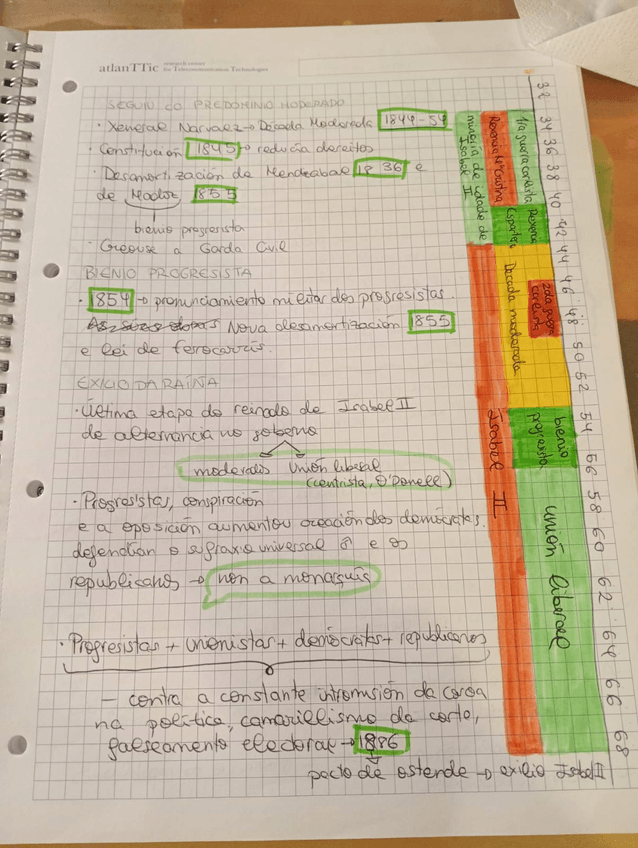 atlanTTic research center for Telecommunication Technologies
SEGUIU CO PREDOMINIO MODERADO
· Xeneral Narvaez → Década Moderada 1844-54
· Constitución 1845 → redución dereitos
· Desamortización de Mendizabal 1836 e
de Madoz 1855
bienio progresista
· Creouse a Garda Civil
BIENIO PROGRESISTA
· 1854 → pronunciamiento militar dos progresistas
Nova desamortización 1855
e lei de ferrocarrís.
EXILIO DA RAÍÑA
· Última etapa do reinado de Isabel II
de alternancia no goberno
moderados Unión liberal
(centrista, O'Donell)
· Progresistas, conspiración
e a oposición aumentou creación dos demócratas.
defendían o sufraxio universal ♂ e os
republicanos → non a monarquía
· Progresistas + unionistas + demócratas + republicanos
– contra a constante intromisión da coroa
na política, camarillismo da corte,
falseamento electoral → 1886
pacto de ostende → exilio Isabel II
32 34 36 38 40 42 44 46 48 50 52 54 56 58 60 62 64 66 68
1ra guerra carlista
Rexencia Mª Cristina
minoría de idade de
Isabel II
Rexencia
Espartero
2da guerra
carlista
Década moderada
bienio
progresista
Isabel II
unión liberal